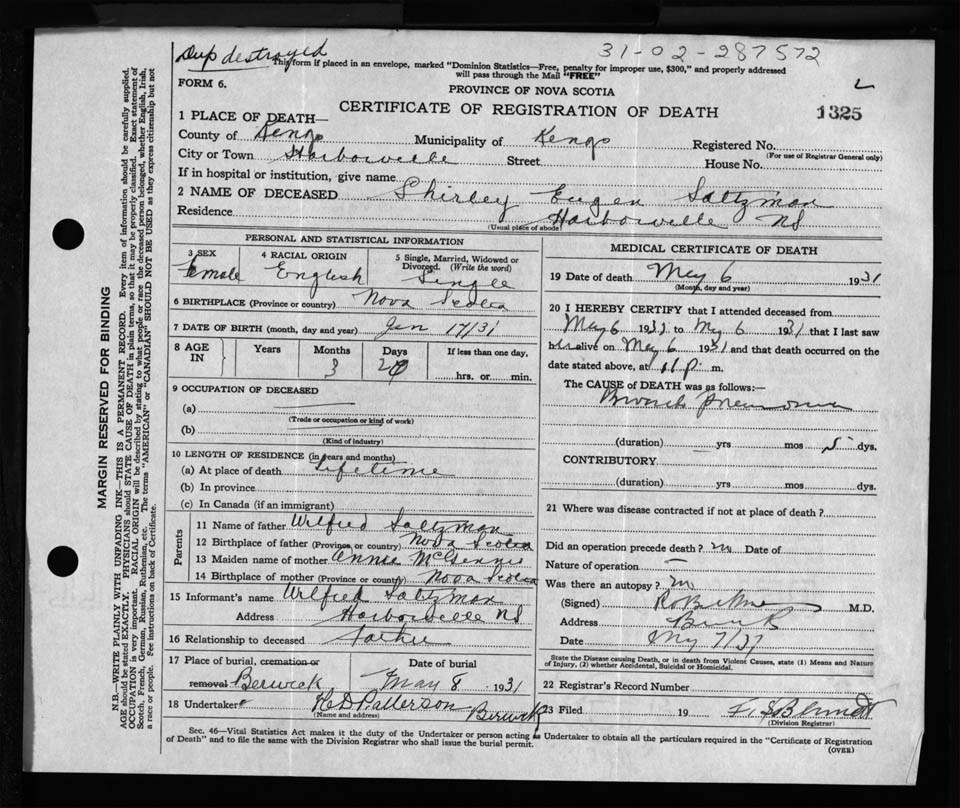 Dup destroyed
31-02-287572
This form if placed in an envelope, marked "Dominion Statistics—Free, penalty for improper use, $300," and properly addressed
will pass through the Mail "FREE"
FORM 6.
PROVINCE OF NOVA SCOTIA
CERTIFICATE OF REGISTRATION OF DEATH
1325
1 PLACE OF DEATH—
County of Kings Municipality of Kings Registered No.
(For use of Registrar General only)
City or Town Harborville Street House No.
If in hospital or institution, give name
2 NAME OF DECEASED Shirley Eugen Saltzman
Residence Harborville NS
(Usual place of abode)
PERSONAL AND STATISTICAL INFORMATION
3 SEX Female
4 RACIAL ORIGIN English
5 Single, Married, Widowed or Divorced. (Write the word) Single
6 BIRTHPLACE (Province or country) Nova Scotia
7 DATE OF BIRTH (month, day and year) Jan 17/31
8 AGE IN Years Months 3 Days If less than one day, hrs. or min.
9 OCCUPATION OF DECEASED
(a)
(Trade or occupation or kind of work)
(b)
(Kind of industry)
10 LENGTH OF RESIDENCE (in years and months)
(a) At place of death Lifetime
(b) In province
(c) In Canada (if an immigrant)
Parents
11 Name of father Wilfred Saltzman
12 Birthplace of father (Province or country) Nova Scotia
13 Maiden name of mother Annie McKenzie
14 Birthplace of mother (Province or country) Nova Scotia
15 Informant's name Wilfred Saltzman
Address Harborville NS
16 Relationship to deceased Father
17 Place of burial, cremation or removal Berwick
Date of burial May 8 1931
18 Undertaker H D Patterson Berwick
(Name and address)
MEDICAL CERTIFICATE OF DEATH
19 Date of death May 6 1931
(Month, day and year)
20 I HEREBY CERTIFY that I attended deceased from
May 6 1931 to May 6 1931 that I last saw
her alive on May 6 1931 and that death occurred on the
date stated above, at 11 p. m.
The CAUSE of DEATH was as follows:—
Broncho pneumonia
(duration) yrs mos 5 dys.
CONTRIBUTORY
(duration) yrs mos dys.
21 Where was disease contracted if not at place of death?
Did an operation precede death? no Date of
Nature of operation
Was there an autopsy? no
(Signed) M.D.
Address Berwick
Date May 7/31
State the Disease causing Death, or in death from Violent Causes, state (1) Means and Nature
of Injury, (2) whether Accidental, Suicidal or Homicidal.
22 Registrar's Record Number
23 Filed 19
(Division Registrar)
Sec. 46—Vital Statistics Act makes it the duty of the Undertaker or person acting as Undertaker to obtain all the particulars required in the "Certificate of Registration
of Death" and to file the same with the Division Registrar who shall issue the burial permit.
(OVER)
MARGIN RESERVED FOR BINDING
N.B.—WRITE PLAINLY WITH UNFADING INK—THIS IS A PERMANENT RECORD. Every item of information should be carefully supplied.
AGE should be stated EXACTLY. PHYSICIANS should STATE CAUSE OF DEATH in plain terms, so that it may be properly classified. Exact statement of
OCCUPATION is very important. RACIAL ORIGIN will be described by stating to what people or race the deceased person belonged, whether English, Irish,
Scotch, French, German, Russian, Ruthenian, etc. The terms "AMERICAN" or "CANADIAN" SHOULD NOT BE USED as they express citizenship but not
a race or people. See instructions on back of Certificate.